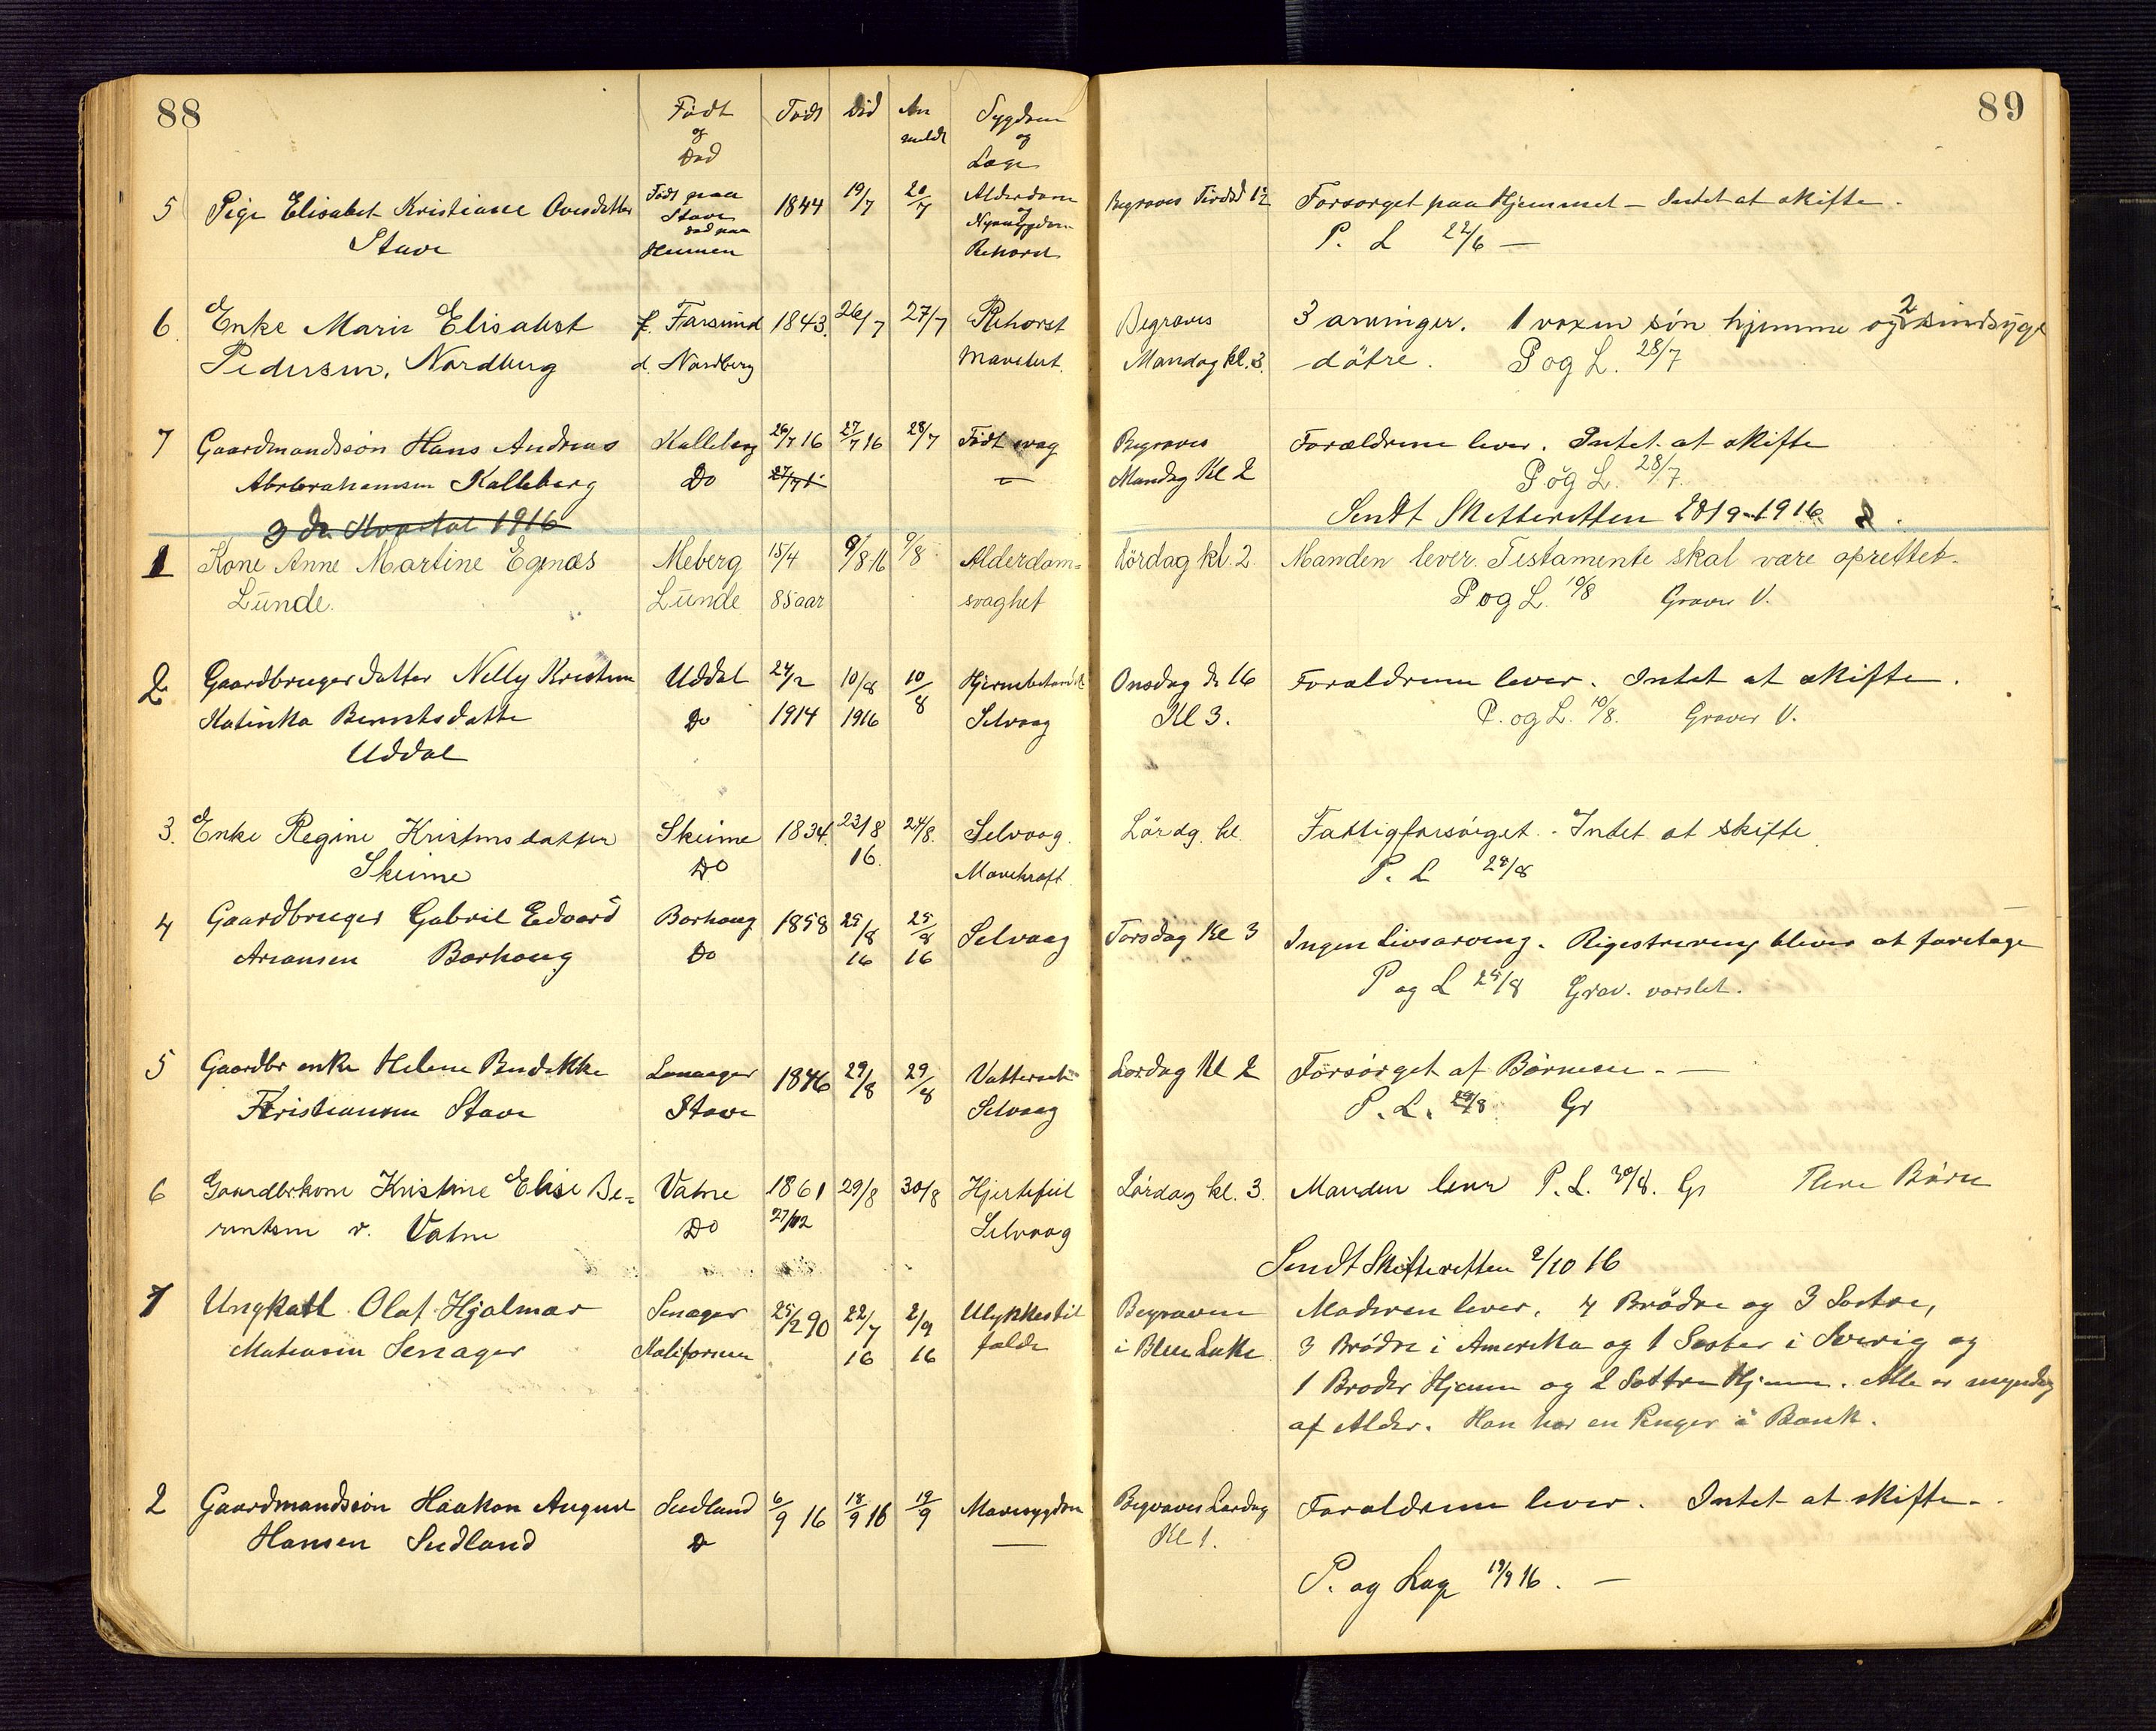 88
89
Født og Død
Født
Død
Anmeldt
Sygdom og Læge
5 Pige Elisabet Kristiane Ovesdatter
Stave
Født paa Stave død paa
1844 19/7 20/7
Alderdom
Rehorst
Begraves
Forsørget paa Hjemmet – Intet at skifte.
P. L 22/6 —
6. Enke Marie Elisabet
Pedersen, Nordberg
f. Farsund
d. Nordberg
1843. 26/7 27/7
Rehorst
Begraves
Mandag kl. 3.
3 arvinger. 1 voxen søn hjemme og 2 sindsyge
døtre. P og L. 28/7
7 Gaardmandssøn Hans Andreas
Kalleberg
Kalleberg
Do
26/7 16 27/7 16 28/7
Født svag
—
Begraves
Mandag Kl 2
Forældrene lever. Intet at skifte
P og L. 28/7.
Sendt Skifteretten 28/9-1916
3de Kvartal 1916
1 Kone Anne Martine Egenæs
Lunde.
Meberg
Lunde
15/4
85 aar
9/8 16 9/8
Alderdom=
svaghet
Lørdag kl. 2.
Manden lever. Testamente skal være oprettet.
P og L. 10/8 Graver V.
2 Gaardbrugerdatter Nelly Kristine
Katinka Berntsdatter
Uddal
Uddal
Do
24/2
1914
10/8
1916
10/8
Selvaag
Onsdag d 16
Kl 3.
Forældrene lever. Intet at skifte.
P. og L. 10/8. Graver V.
3. Enke Regine Kristensdatter
Skeime
Skeime
Do
1834. 23/8
16.
24/8.
Selvaag.
Mavekræft.
Lørdg. kl.
Fattigforsørget. Intet at skifte.
P. L 24/8
4 Gaardbruger Gabriel Edvard
Arnansen Borhaug
Borhaug
Do
1858 25/8
16
25/8
16
Selvaag
Torsdag Kl 3
Ingen Livsarving. Rigestrering bliver at foretage
P og L 25/8 Grav. varslet.
5 Gaardbr enke Helene Bendikke
Kristiansen Stave
Stave
1846 29/8 29/8
Vattersot
Selvaag
Lørdag Kl 2
Forsørget af Børnene. —
P. L. 29/8 Gr
6 Gaardbrkone Kristine Elise Be=
rntsen v. Vatne
Vatne
Do
1861
27/12
29/8 30/8
Hjertefeil
Selvaag
Lørdag kl. 3.
Manden lever P. L. 30/8. Gr Flere Børn
Sendt Skifteretten 2/10 16
1 Ungkall Olaf Hjalmar
Matiasen Senager
Senager
Kalifornien
25/2 90 22/7
16
2/9
16
Ulykkestil
fælde
Begraven
i Blue Lake
Moderen lever. 4 Brødre og 3 Søstre,
3 Brødre i Amerika og 1 Søster i Sverig og
1 Broder Hjemm og 2 Søstre Hjemm. Alle er myndig
af Alder. Han har en Penger i Bank.
2 Gaardmandssøn Haakon August
Hansen Sudland
Sudland
Do
6/9 16 18/9 16 19/9
Mavesygdom
—
Begraves Lørdag
Kl 1.
Forældrene lever. Intet at skifte.
P. og Læge 19/9 16. —